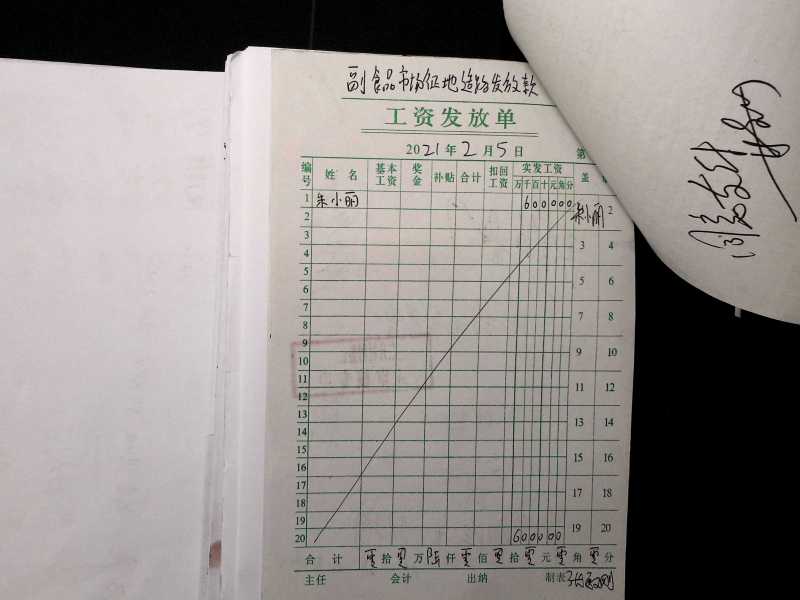 副食品市场征地造路发放款
工资发放单
2021年2月5日 第
编号 姓名 基本工资 奖金 补贴 合计 扣回工资 实发工资 盖
万 千 百 十 元 角 分
1 朱小丽 600000 朱小丽 2
2
3 3 4
4
5 5 6
6
7 7 8
8
9 9 10
10
11 11 12
12
13 13 14
14
15 15 16
16
17 17 18
18
19 19 20
20 600000
合计 零拾零万陆仟零佰零拾零元零角零分
主任 会计 出纳 制表
同意支付